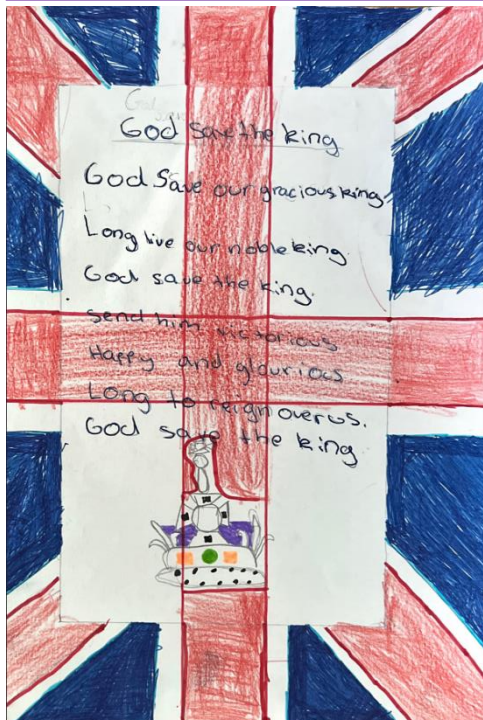 God save the king
God Save our gracious king
Long live our noble king
God save the king.
Send him victorious
Happy and glourious
Long to reign over us.
God save the king